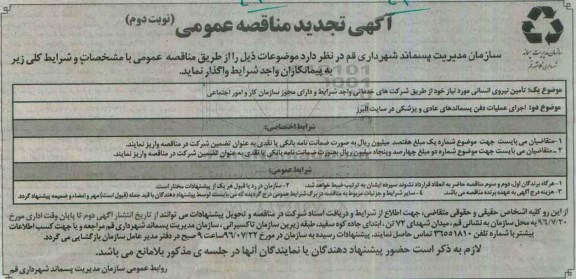 آگهی تجدید مناقصه عمومی (نوبت دوم)
سازمان مدیریت پسماند شهرداری قم در نظر دارد موضوعات ذیل را از طریق مناقصه عمومی با مشخصات و شرایط کلی زیر
به پیمانکاران واجد شرایط واگذار نماید.
موضوع یک: تأمین نیروی انسانی مورد نیاز خود از طریق شرکت های خدماتی واجد شرایط و دارای مجوز سازمان کار و امور اجتماعی
موضوع دو: اجرای عملیات دفن پسماندهای عادی و پزشکی در سایت البرز
شرایط اختصاصی:
۱-متقاضیان می بایست جهت موضوع شماره یک مبلغ هفتصد میلیون ریال به صورت ضمانت نامه بانکی یا نقدی به عنوان تضمین شرکت در مناقصه واریز نمایند.
۲-متقاضیان می بایست جهت موضوع شماره دو مبلغ چهارصد و پنجاه میلیون ریال بصورت ضمانت نامه بانکی یا نقدی به عنوان تضمین شرکت در مناقصه واریز نمایند.
شرایط عمومی:
۱-هرگاه برندگان اول، دوم و سوم مناقصه حاضر به انعقاد قرارداد نشوند سپرده ایشان به ترتیب ضبط خواهد شد. ۲-سازمان در رد یا قبول هر یک از پیشنهادات مختار است.
۳-هزینه درج آگهی به عهده برنده مناقصه می باشد. ۴-سایر شرایط و جزئیات مربوط به مناقصه در برگ شرایط عمومی درج گردیده که می بایست توسط پیشنهاد دهندگان با قید جمله (قبول است) مهر و امضاء و ضمیمه پیشنهاد گردد.
از این رو کلیه اشخاص حقیقی و حقوقی متقاضی، جهت اطلاع از شرایط و دریافت اسناد شرکت در مناقصه و تحویل پیشنهادات می توانند از تاریخ انتشار آگهی دوم تا پایان وقت اداری مورخ
۹۶/۷/۲۰ به محل سازمان به نشانی قم، میدان شهدای ۷۲ تن، ابتدای جاده کوه سفید، طبقه زیرین سازمان تاکسیرانی، سازمان مدیریت پسماند شهرداری قم مراجعه و یا جهت کسب اطلاعات
بیشتر با شماره تلفن ۳۶۵۰۱۸۱۰ تماس حاصل نمایند. پیشنهادات رسیده به سازمان در مورخ ۹۶/۰۷/۲۲ ساعت ۹ صبح در دفتر مدیر عامل سازمان بازگشایی می گردد.
لازم به ذکر است حضور پیشنهاد دهندگان یا نمایندگان آنها در جلسه ی مذکور بلامانع می باشد.
روابط عمومی سازمان مدیریت پسماند شهرداری قم